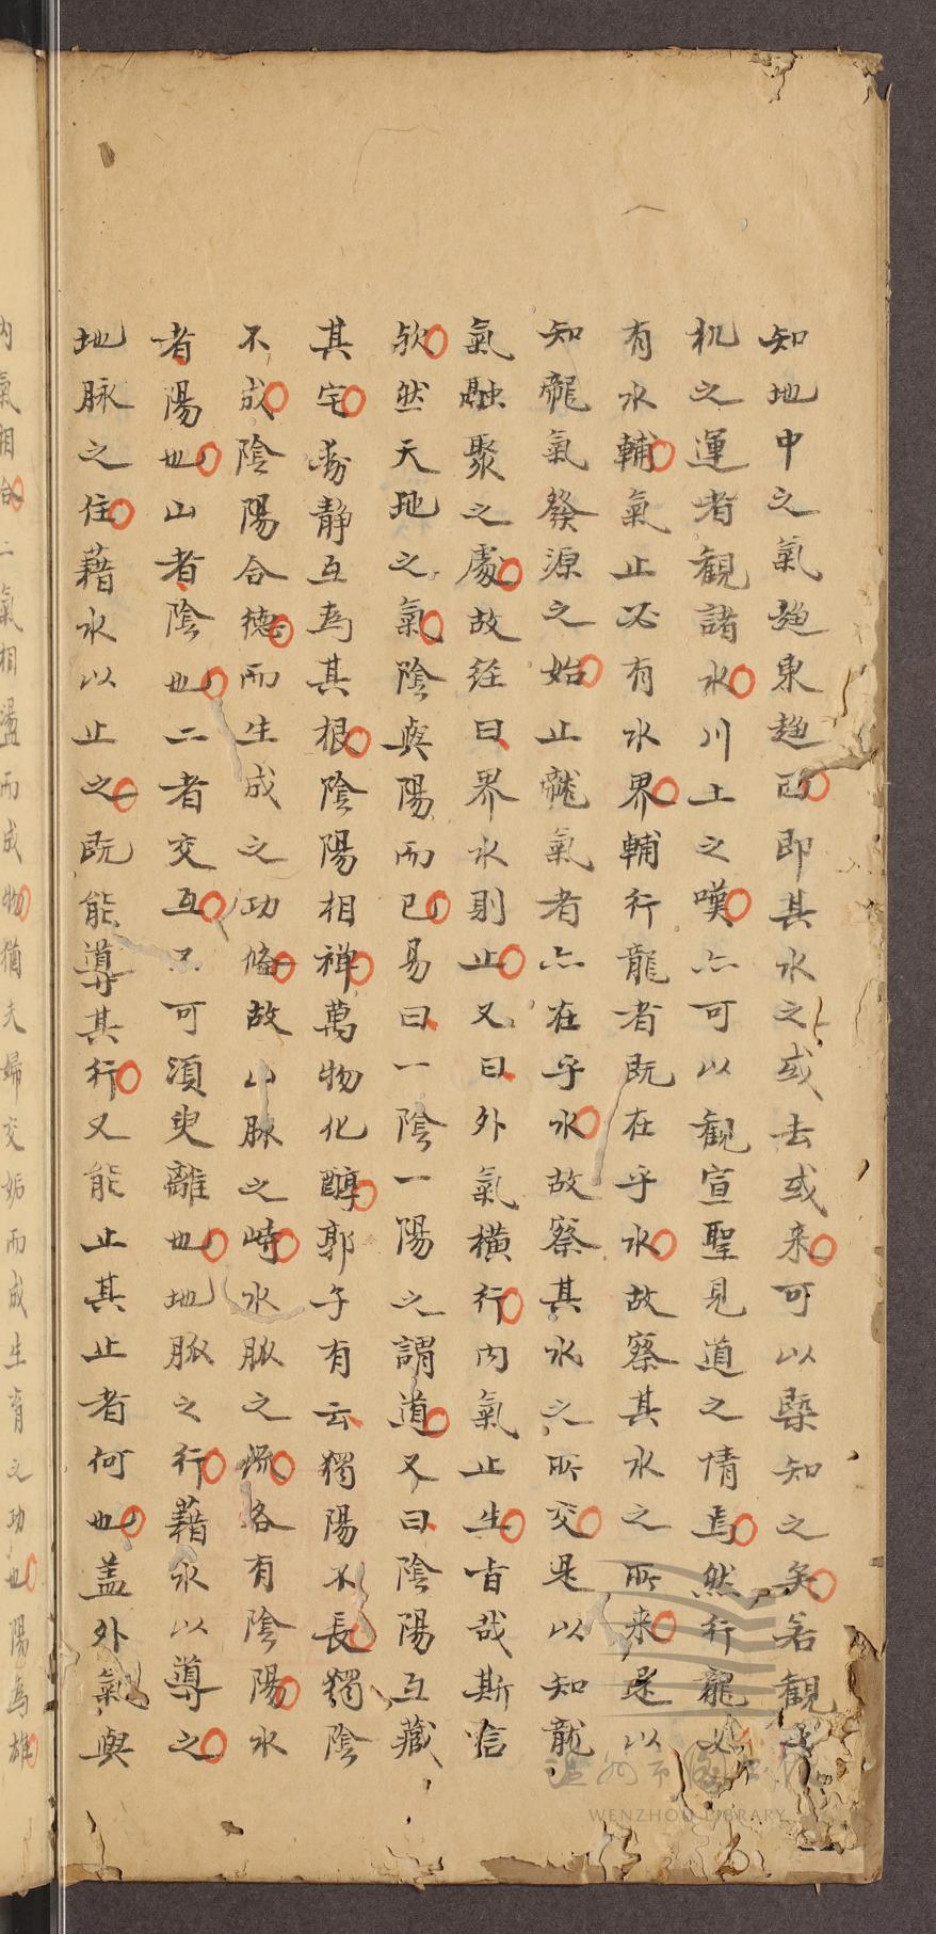 知地中之氣趨東趨西即其水之或去或来可以槩知之矣若觀
机之運者觀諸水川上之嘆亦可以觀宣聖見道之情焉然行龍必
有水輔氣止必有水界輔行龍者既在乎水故察其水之所来是以
知龍氣發源之始止龍氣者亦在乎水故察其水之所交是以知龍
氣融聚之處故经曰界水則止又曰外氣橫行内氣止生旨哉斯信
欤然天地之氣陰與陽而已易曰一陰一陽之謂道又曰陰陽互藏
其宅動靜互為其根陰陽相禅萬物化醇郭子有云獨陽不長獨陰
不成陰陽合德而生成之功備故山脉之峙水脉之流各有陰陽水
者陽也山者陰也二者交互不可須臾離也地脈之行藉水以導之
地脉之住藉水以止之既能導其行又能止其止者何也盖外氣與
内氣相合二氣相盪而成物猶夫婦交姤而成生育之功也陽為雄
WENZHOU LIBRARY